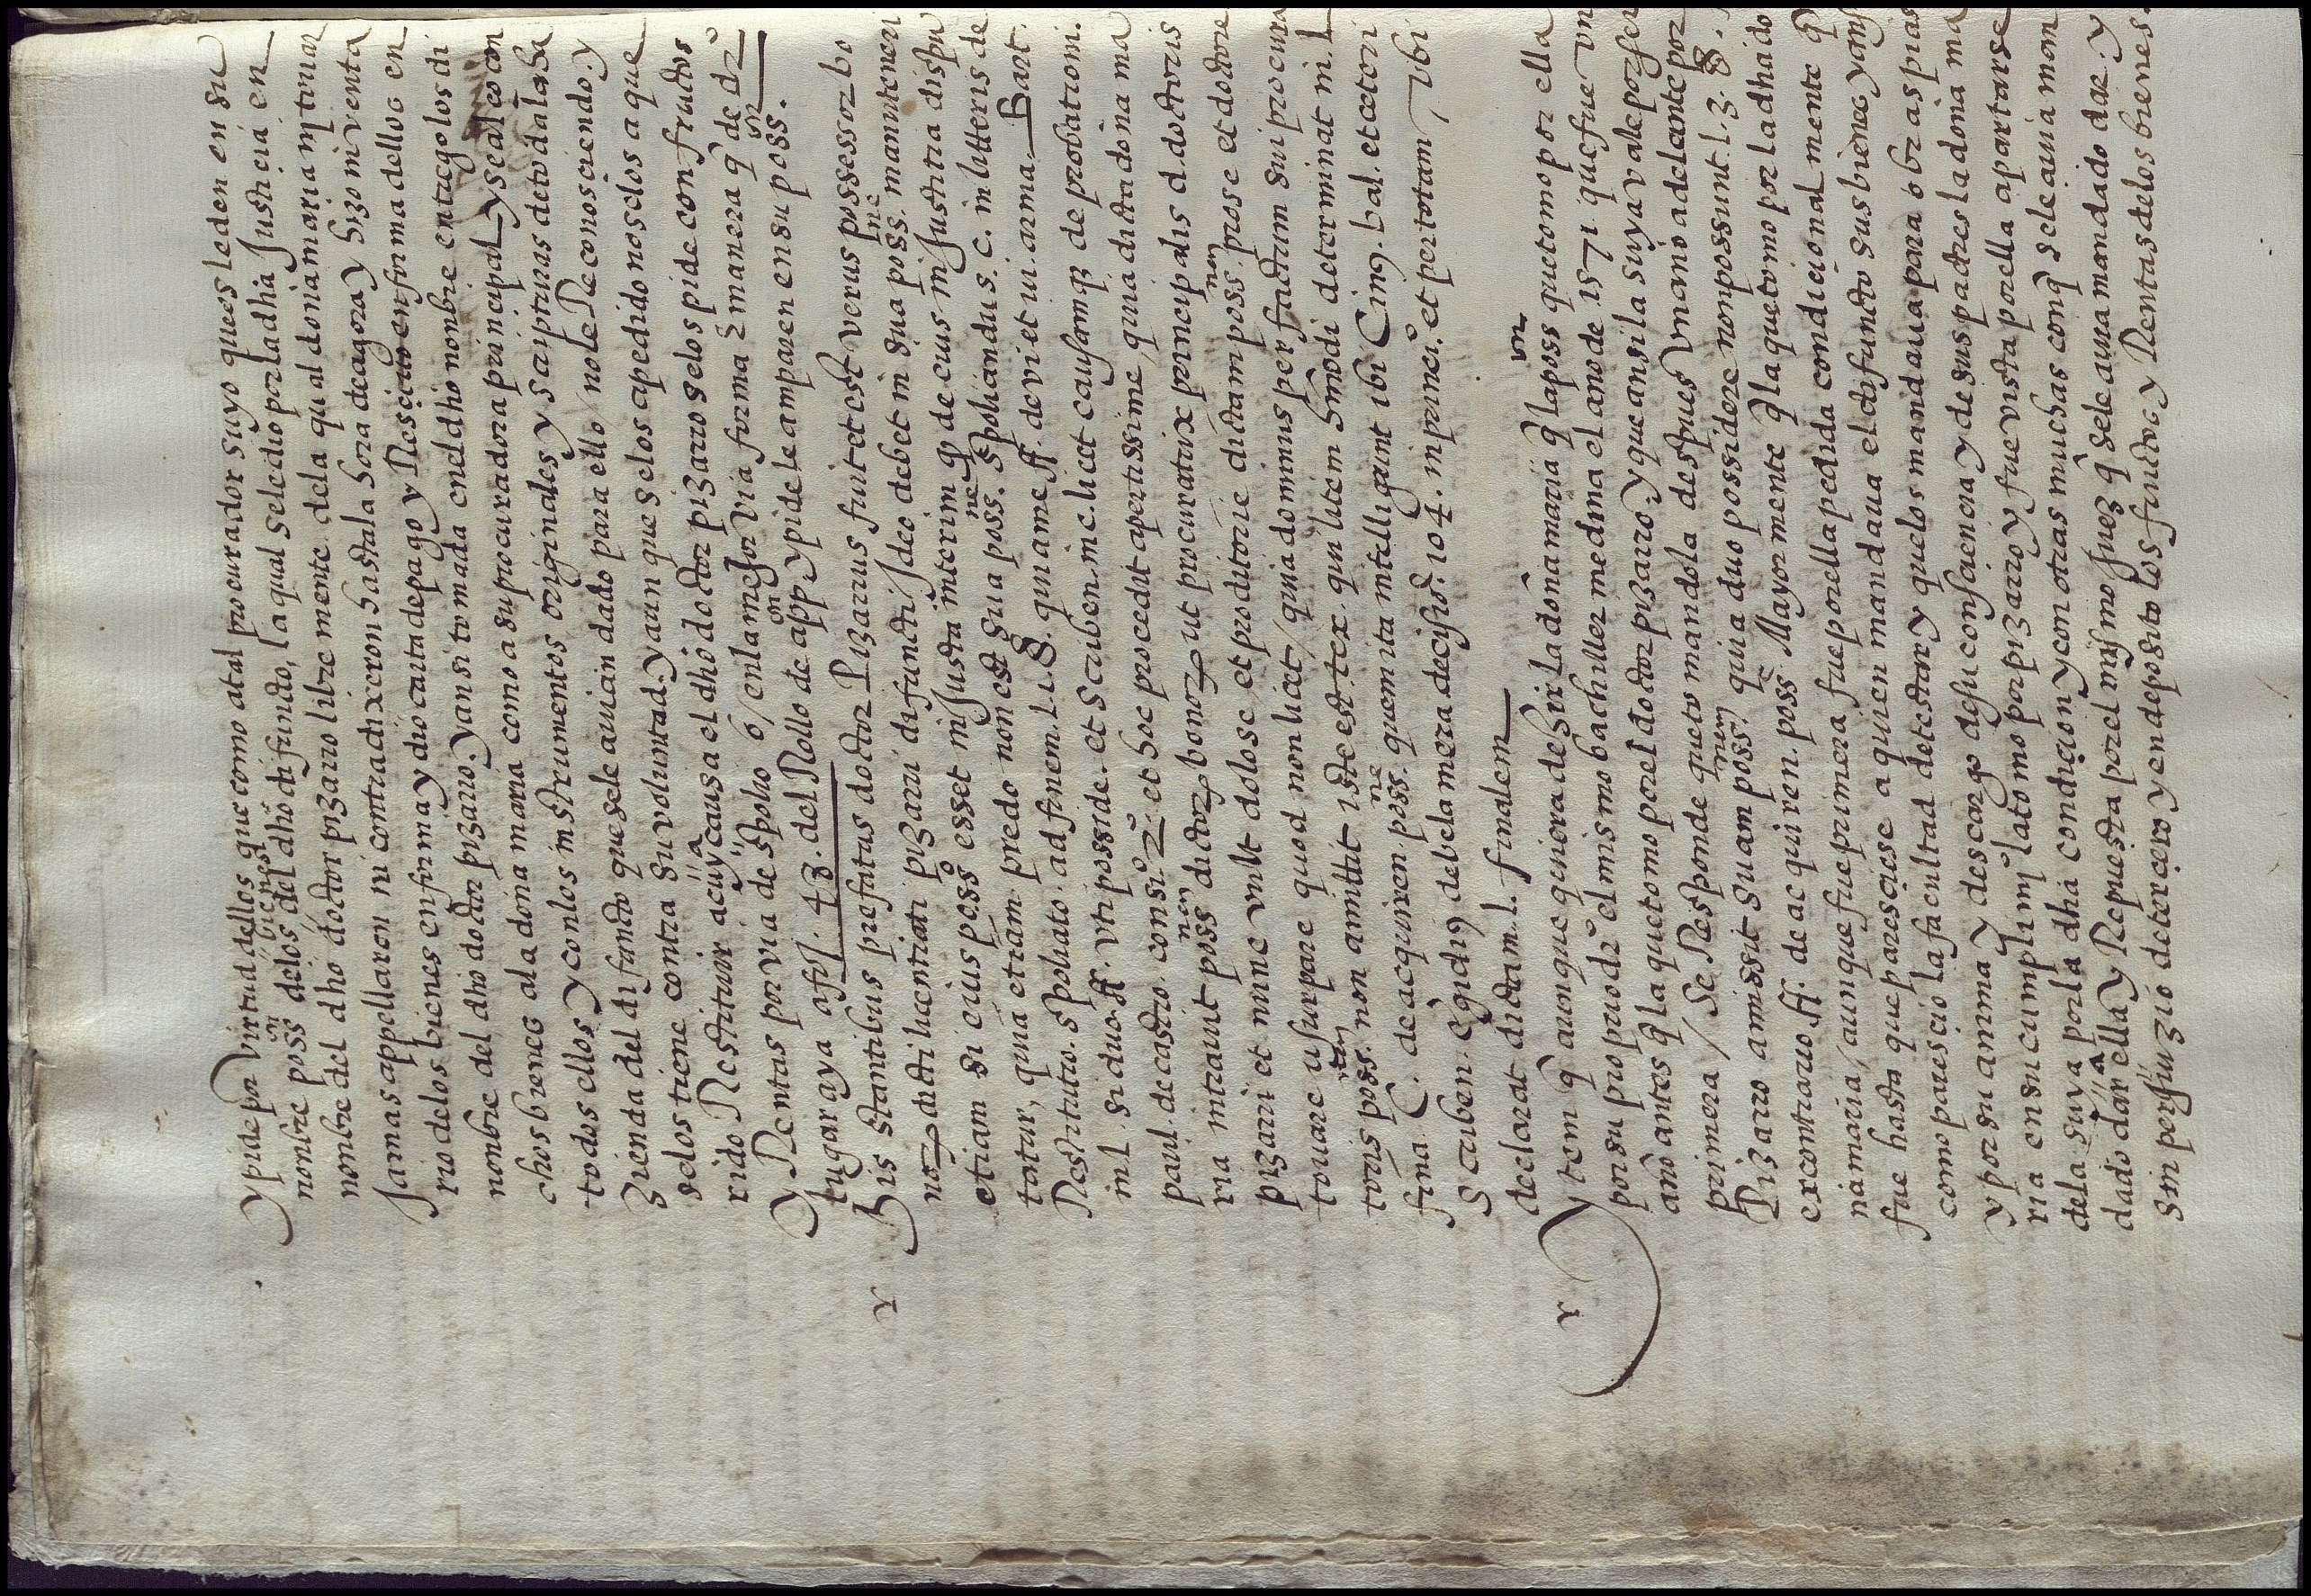 y pide por virtud dellos que como a tal procurador suyo que es le den en su
nonbre possōn delos bienes del dhō difuncto, la qual se le dio por la dhā Justicia en
nonbre del dhō doctor pizarro libremente dela qual doña maria ni tirur
Jamas appellaron ni contradixeron hasta la hora de agora y hizo inventa
rio delos bienes en forma y dio carta de pago y Resciuo en forma dellos en
nonbre del dhō doctor pizarro. y ansi tomada en el dhō nonbre entrego los di
chos bienes ala doña maria como a su procuradora principal y se alço con
todos ellos y con los instrumentos originales y scripturas de toda la ha
zienda del difuncto que se le auian dado para ello / no le Reconosciendo. y
se los tiene contra su voluntad. y aunque se los a pedido no se los a que
rido Restituir a cuyā causa el dhō doctor pizarro se los pide con fructos
y Rentas por via de spolio o / en la mejor via forma ē manera q̄ de drō
lugar aya a fos. 43. del Rollo de appōn y pide le amparen en su possōn.
His stantibus prefatus doctor Pizarrus fuit et est verus possessor bo
norȝ dicti licentiati pizarri difuncti / ideo debet in sua possne. manuteneri
etiam si eius possō esset inJusta interim q̄ de eius inJustitia dispu
tatur, quia etiam predo non est sua possne. spoliandus. c. in litteris de
Restitutio. spoliato. ad finem. l. 1. §. qui a me ff. de vi et vi. arma. Bart.
in l. si duo. ff. vti posside. et scriben. in c. licet causam qȝ de probationi.
paul. de castro. consi.º 2.º et hoc procedit apertissime, quia dicta doña ma
ria intrauit possnen dictorȝ bonorȝ ut procuratrix principalis d. doctoris
pizarri et nunc vult dolose et proditorie dictam possnen. pro se et doctore
touare usurpare quod non licet / quia dominus per factum sui procura
toris possnen. non amittit iste est tex. qui litem hmōdi determinat in. l.
fina. C. de acquiren. possne. quem ita intelligunt ibi Cinꝰ. bal. et ceteri
scriben. Egidiꝰ de bela mera decisiō. 104. in princi.º et per totam / vbi
declarat dictam. l. finalem
Ytem q̄ aunque quiera deZir la doña maria q̄ la possōn que tomo por ella
por su proprio drō el mismo bachiller medina el año de 1571 que fue vn
año antes q̄ la que tomo por el doctor pizarro. y que ansi la suya vale por ser
primera / Se Responde que tomandola despues vn año adelante por
Pizarro amissit suam possnem quia duo possidere non possunt. l. 3. §.
ex contrario. ff. de acquiren. possē. Mayormente q̄ la que tomo por la dha do
ña maria / aunque fue primera fue por ella pedida condicionalmente q̄
fue hasta que paresciese a quien mandaua el difuncto sus bienes y ansi
como parescio la facultad de testar y que los mandaua para obras pias
y por su anima y descargo de su consciencia y de sus padres la doña ma
ria en su cumplimiō la tomo por pizarro y fue vista por ella apartarse
dela suya por la dhā condicion y con otras muchas con q̄ se le auia man
dado dar ellā y Repuesta por el mismo Juez q̄ se le auia mandado dar. y
sin perJuizio de tercero y en deposito los fructos y Rentas delos bienes.